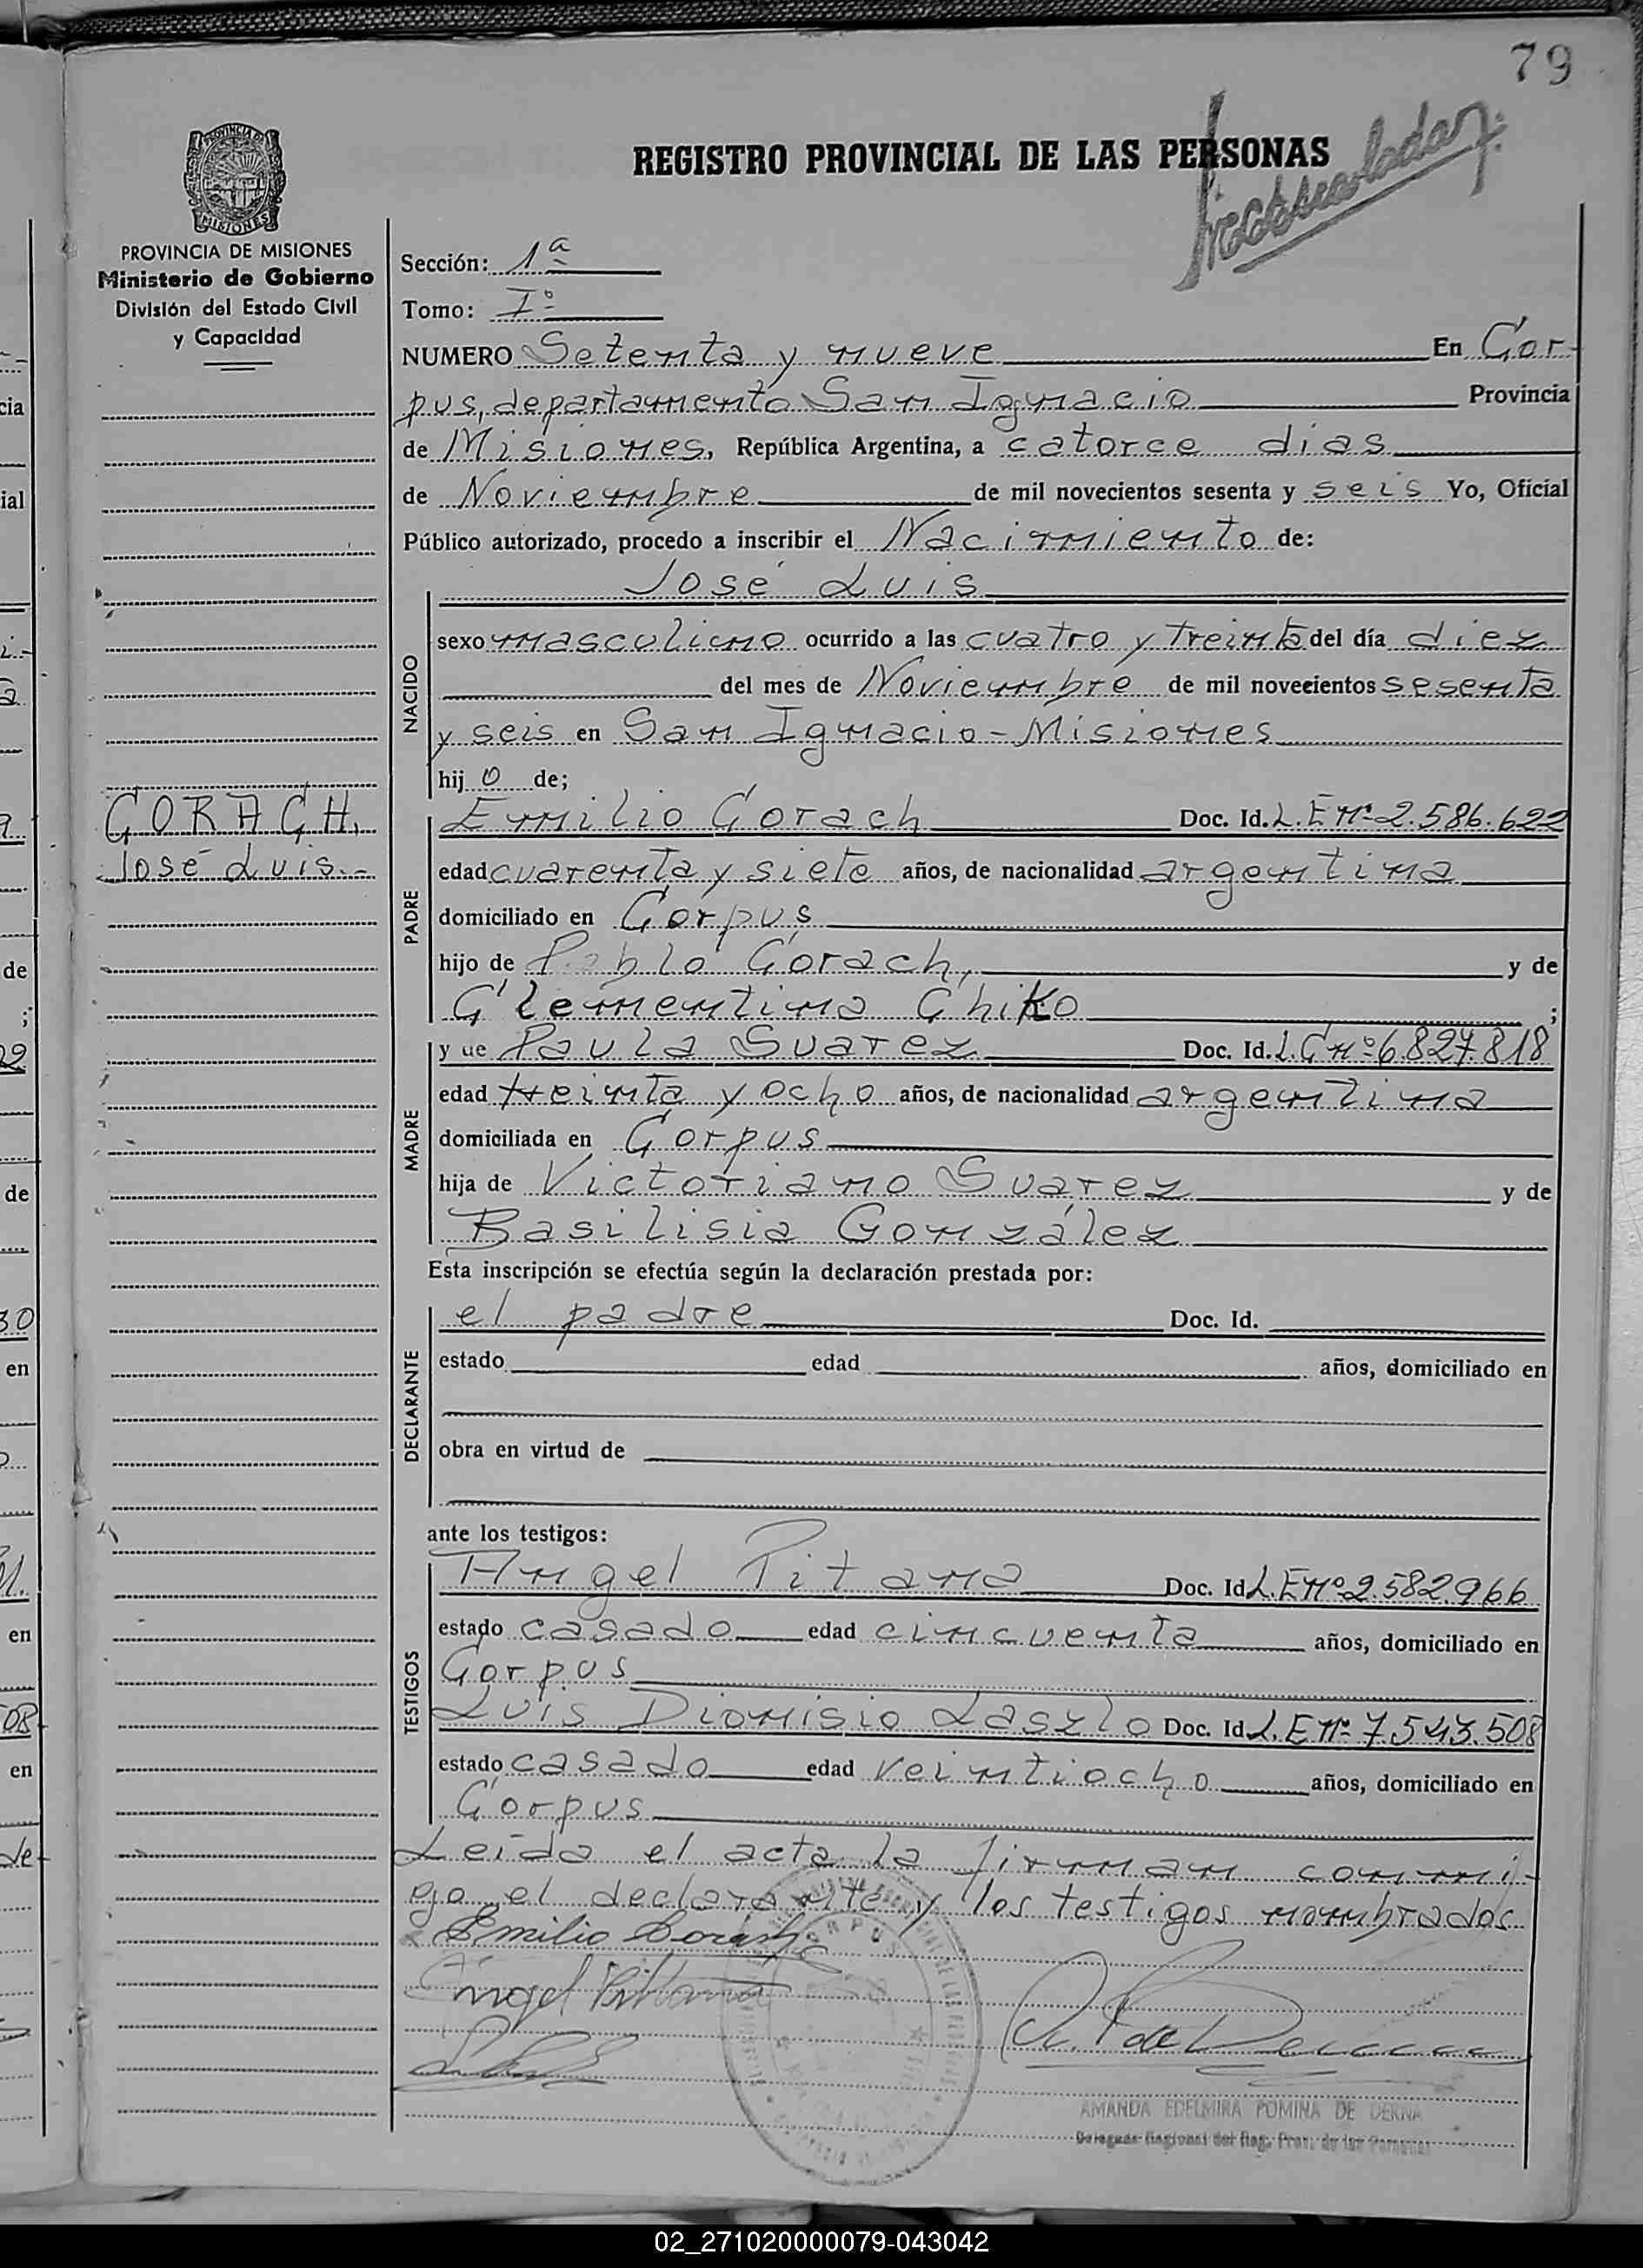 79
REGISTRO PROVINCIAL DE LAS PERSONAS
PROVINCIA DE MISIONES
Ministerio de Gobierno
División del Estado Civil
y Capacidad
Sección: 1ª
Tomo: Iº
NUMERO Setenta y nueve En Cor-
pus, departamento San Ignacio Provincia
de Misiones, República Argentina, a catorce dias
de Noviembre de mil novecientos sesenta y seis Yo, Oficial
Público autorizado, procedo a inscribir el Nacimiento de:
José Luis
NACIDO
sexo masculino ocurrido a las cuatro y treinta del día diez
del mes de Noviembre de mil novecientos sesenta
y seis en San Ignacio - Misiones
hij o de;
CORACH,
José Luis.-
PADRE
Emilio Corach Doc. Id. L.E nº 2.586.622
edad cuarenta y siete años, de nacionalidad argentina
domiciliado en Corpus
hijo de Pablo Corach, y de
Clementina Chiko ;
MADRE
y ue Paula Suarez Doc. Id. L.C nº 6.827.818
edad treinta y ocho años, de nacionalidad argentina
domiciliada en Corpus
hija de Victoriano Suárez y de
Basilisia González
Esta inscripción se efectúa según la declaración prestada por:
DECLARANTE
el padre Doc. Id.
estado edad años, domiciliado en
obra en virtud de
ante los testigos:
TESTIGOS
Angel Pitana Doc. Id L.E nº 2.582.966
estado casado edad cincuenta años, domiciliado en
Corpus
Luis Dionisio Laszlo Doc. Id L.E nº 7.543.508
estado casado edad veintiocho años, domiciliado en
Corpus
Leida el acta la firman conmi-
go el declarante y los testigos nombrados
Emilio Corach
Angel Pittana
AMANDA EDELMIRA POMINA DE DERNA
Delegada Regional del Reg. Prov. de las Personas
02_271020000079-043042